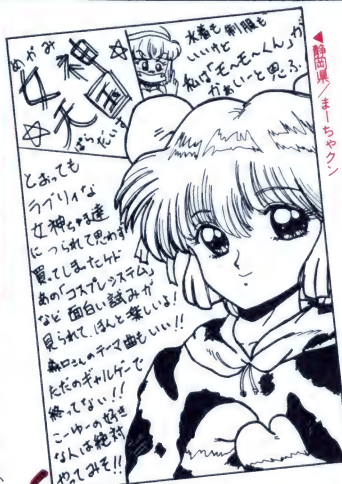 ◀静岡県/まーちゃクン
めがみ
女神
天国
ぱらだいす
水着も制服も
いいけど
私は「モ〜モ〜くん」が
かあいーと思ふ
とおっても
ラブリィな
女神ちゃま達
につられて思わず
買ってしまったケド
あの「コスプレシステム」
など面白い試みが
見られて、ほんと楽しいよ!
森口さんのテーマ曲もいい!!
ただのギャルゲーで
終ってない!!
こーゆーの好き
な人は絶対
やってみそ!!